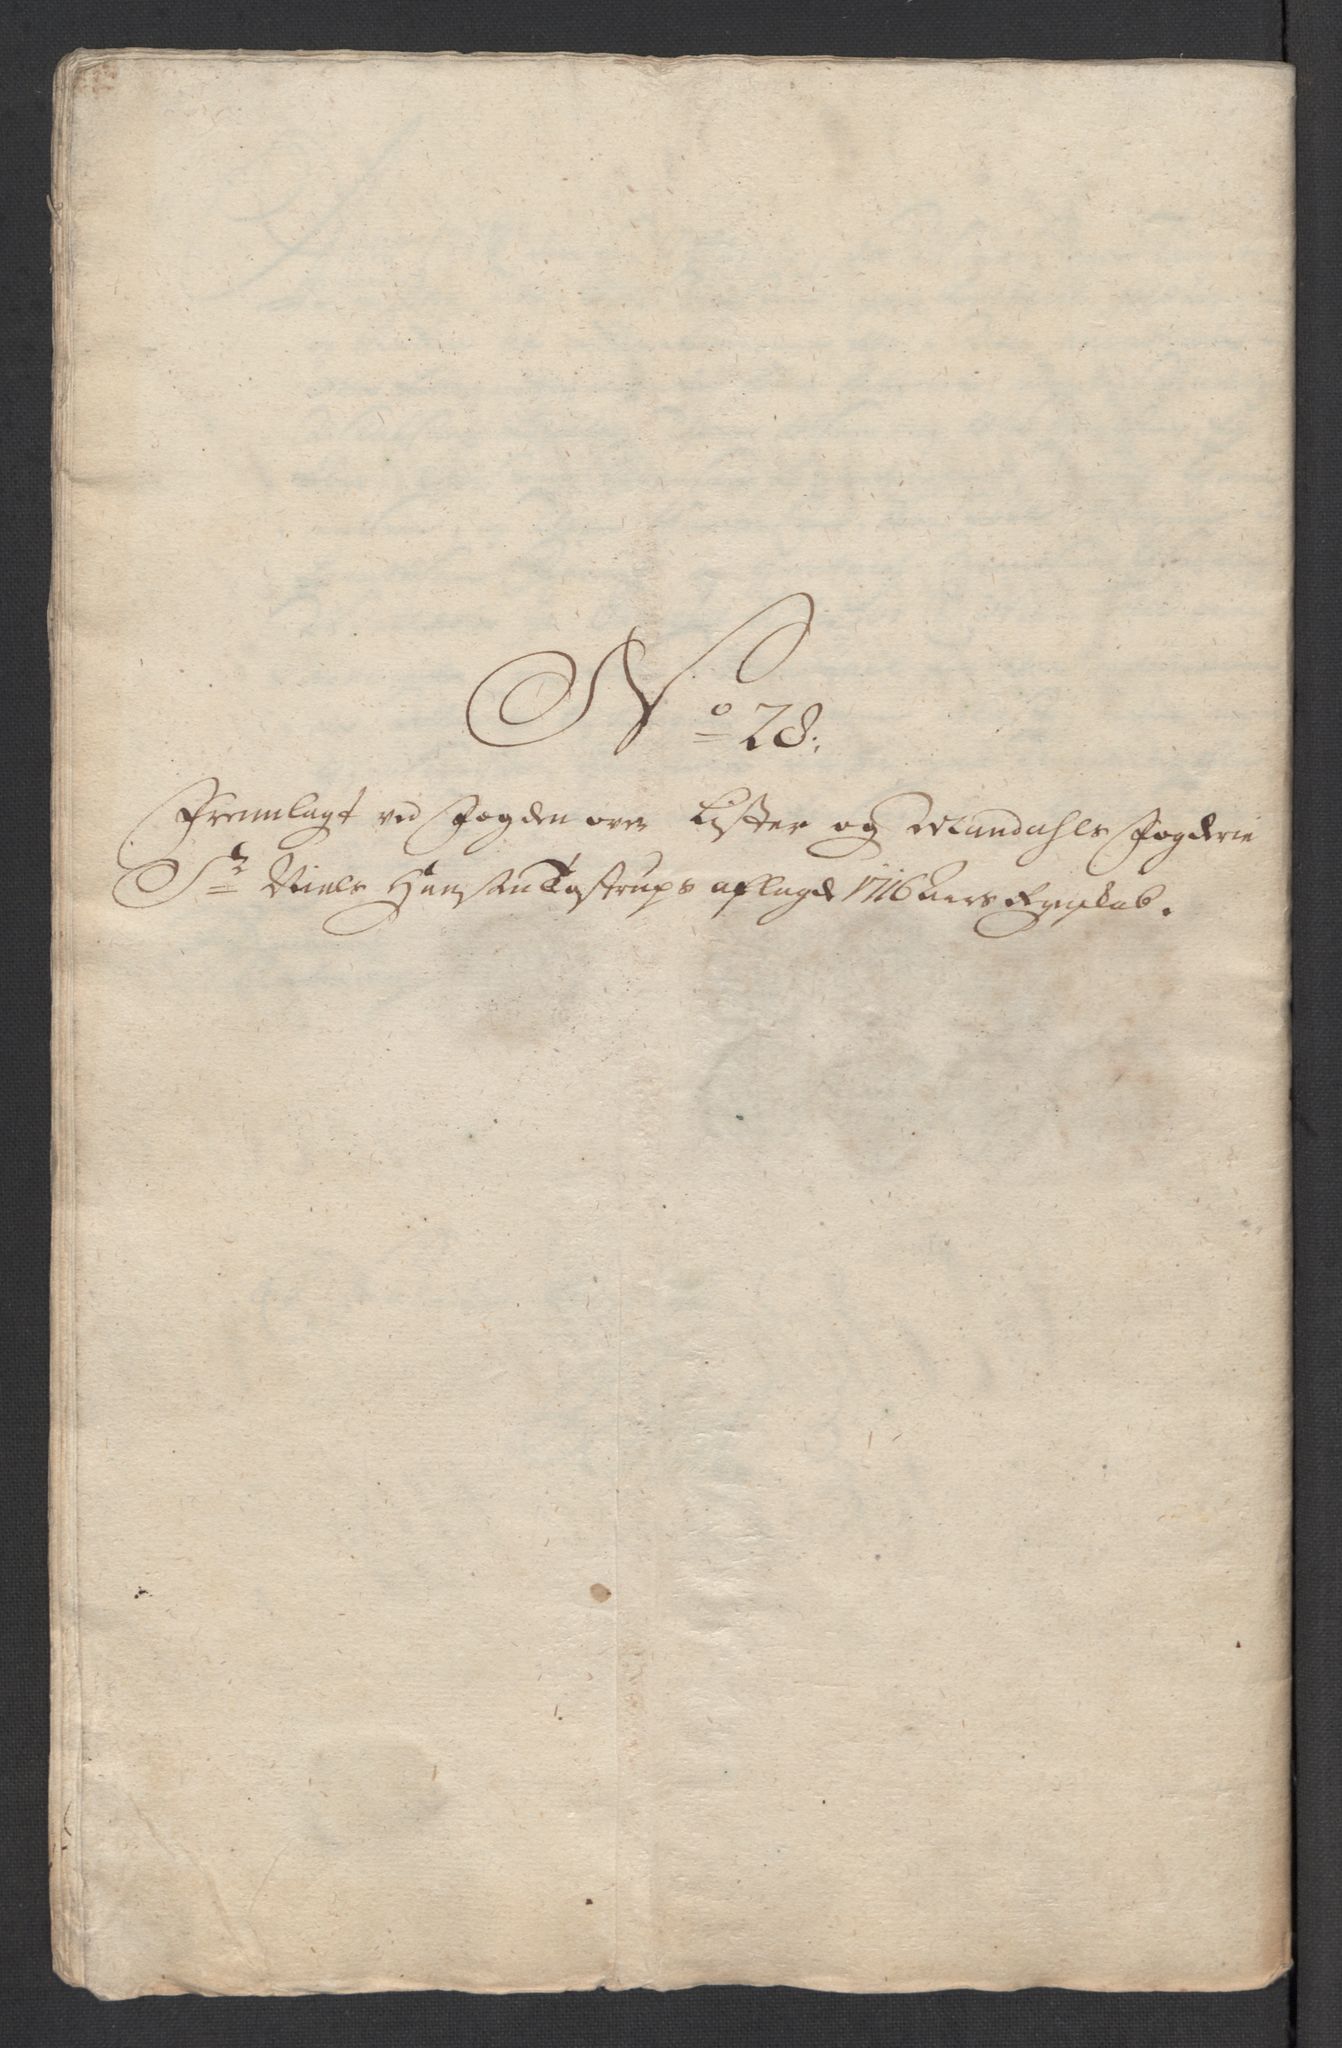 No 28.
Fremlagt ved Fogden over Lister og Mandahls Fogderie
Sr Niels Hansen Tastrups aflagde 1716 Aars Regnskab.